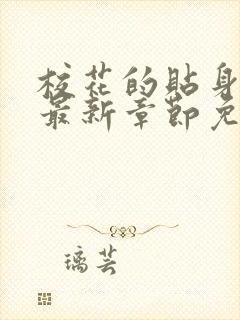 校花的贴身
最新章节免
璃芸